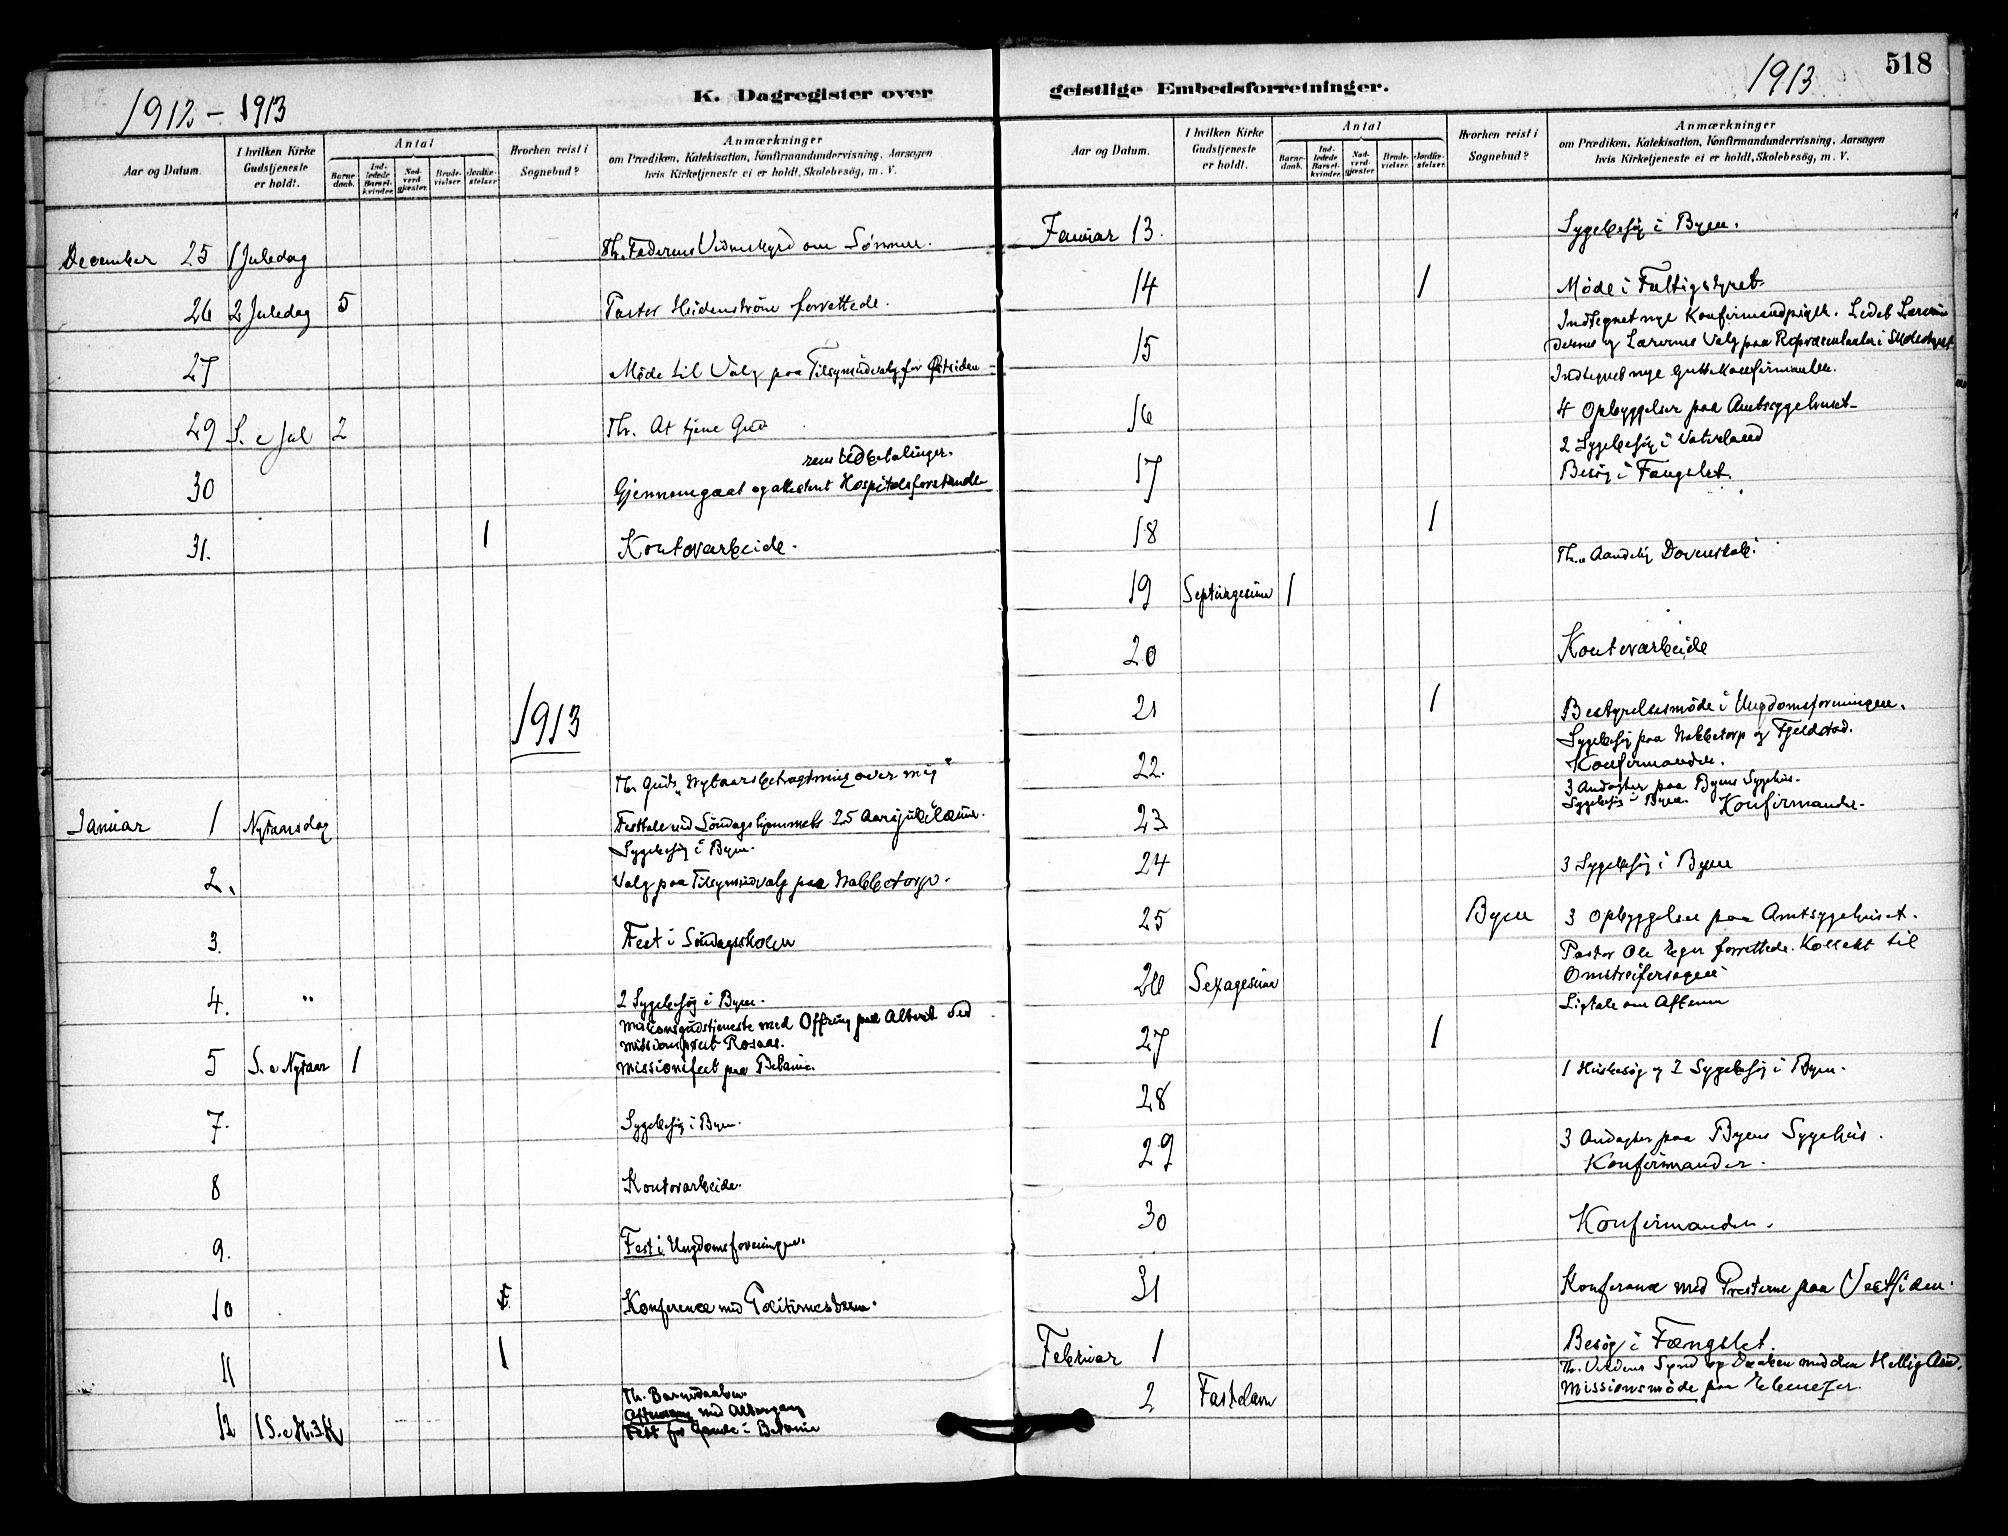 1912 – 1913
K. Dagregister over
Aar og Datum.
I hvilken Kirke Gudstjeneste er holdt.
Antal
Barnedaab.
Indledede Barselkvinder.
Nadverdgjæster.
Brudevielser.
Jordfæstelser.
Hvorhen reist i Sognebud?
Anmærkninger
om Prædiken, Katekisation, Konfirmandundervisning, Aarsagen
hvis Kirketjeneste ei er holdt, Skolebesög, m. V.
December 25 1 Juledag Th. Faderens Vidnesbyrd om Sønnen.
26 2 Juledag 5 Pastor Heidenstrøm forrettede.
27 Møde til Valg paa Tilsynsudvalg for Østsiden
29 S. e Jul 2 Th. At tjene Gud
30 Gjennemgaat og attesteret Hospitalsforstanderens Udbetalinger.
31. 1 Kontorarbeide.
1913
Th. Guds "Nytaarsbetragtning over mig"
Januar 1 Nytaarsdag Festtale ved Søndagshjemmets 25 Aarsjubilæum.
Sygebesøg i Byen.
2. Valg paa Tilsynsudvalg paa Nabbetorp.
3. Fest i Søndagsskolen
4. " 2 Sygebesøg i Byen.
Missionsgudstjeneste med Offring paa Alteret ved
Missionsprest Rosaas.
5 S. e Nytaar 1 Missionsfest paa Betania.
7. Sygebesøg i Byen.
8 Kontorarbeide.
9. Fest i Ungdomsforeningen.
10 Konference med Politimesteren.
11 1
Th. Barnedaaben.
Aftensang med Altergang
12 1 S. e H.3.K Fest for Gamle i Betania
1913
518
geistlige Embedsforretninger.
Aar og Datum.
I hvilken Kirke Gudstjeneste er holdt.
Antal
Barnedaab.
Indledede Barselkvinder.
Nadverdgjæster.
Brudevielser.
Jordfæstelser.
Hvorhen reist i Sognebud?
Anmærkninger
om Prædiken, Katekisation, Konfirmandundervisning, Aarsagen
hvis Kirketjeneste ei er holdt, Skolebesög, m. V.
Januar 13. Sygebesøg i Byen.
14 1 Møde i Fattigstyret
Indtegnet nye Konfirmandpiger. Ledet Lærerindernes
og Lærernes Valg paa Repræsentanter i Skolestyret
15 Indtegnet nye Guttekonfirmanter.
16 4 Opbyggelser paa Amtssygehuset
2 Sygebesøg i Vaterland
17 Besøg i Fængslet.
18 1
Th. "Aandelig Dovenskab".
19 Septuagesima 1
20 Kontorarbeide
21 1 Bestyrelsesmøde i Ungdomsforeningen.
Sygebesøg paa Nabbetorp og Fjeldstad.
22. Konfirmander.
3 Andagter paa Byens Sygehus.
23 Sygebesøg i Byen. Konfirmander.
24 3 Sygebesøg i Byen
25 Byen 3 Opbyggelser paa Amtsygehuset.
Pastor Ole Eger forrettede. Kollekt til
26 Sexagesima Omstreifersagen
Ligtale om Aftenen
27 1
1 Husbesøg og 2 Sygebesøg i Byen.
28
29 3 Andagter paa Byens Sygehus.
Konfirmander.
30 Konfirmander.
31 Konferanse med Presterne paa Vestsiden.
Februar 1 Besøg i Fængslet.
Th. Verdens Synd og Daaben med den Hellig Aand.
2 Fastelavn Missionsmøde paa Ebenezer.